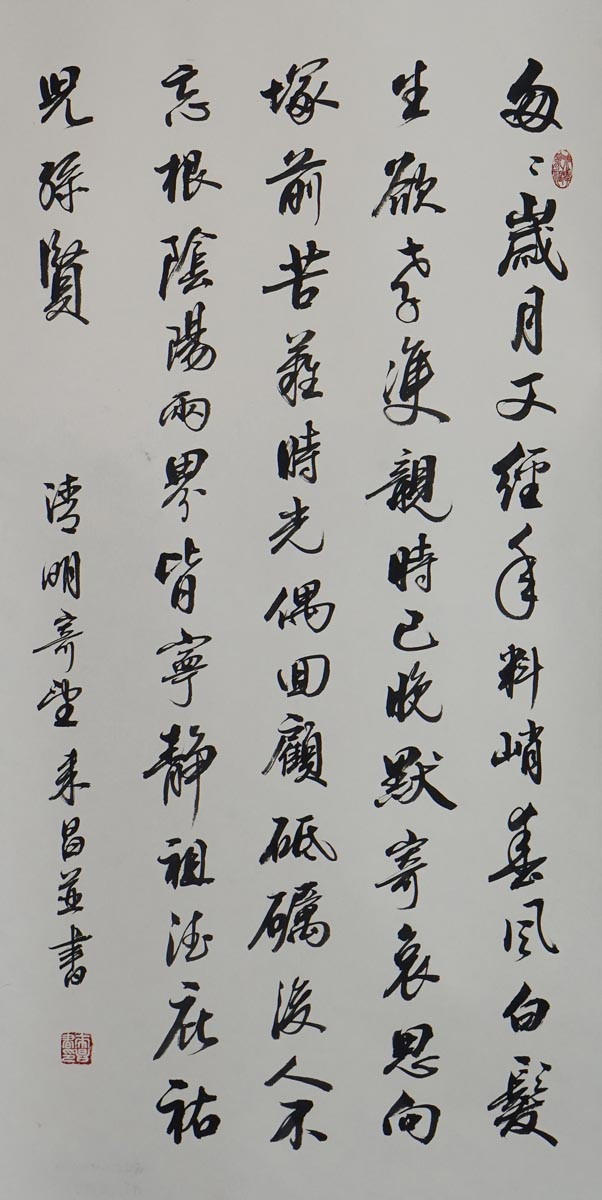 匆〻歲月又經年料峭春風白髮
生欲孝雙親時已晚默寄哀思向
塚前苦難時光偶回顧砥礪後人不
忘根陰陽兩界皆寧靜祖德庇祐
兒孫賢
清明寄望来昌並書